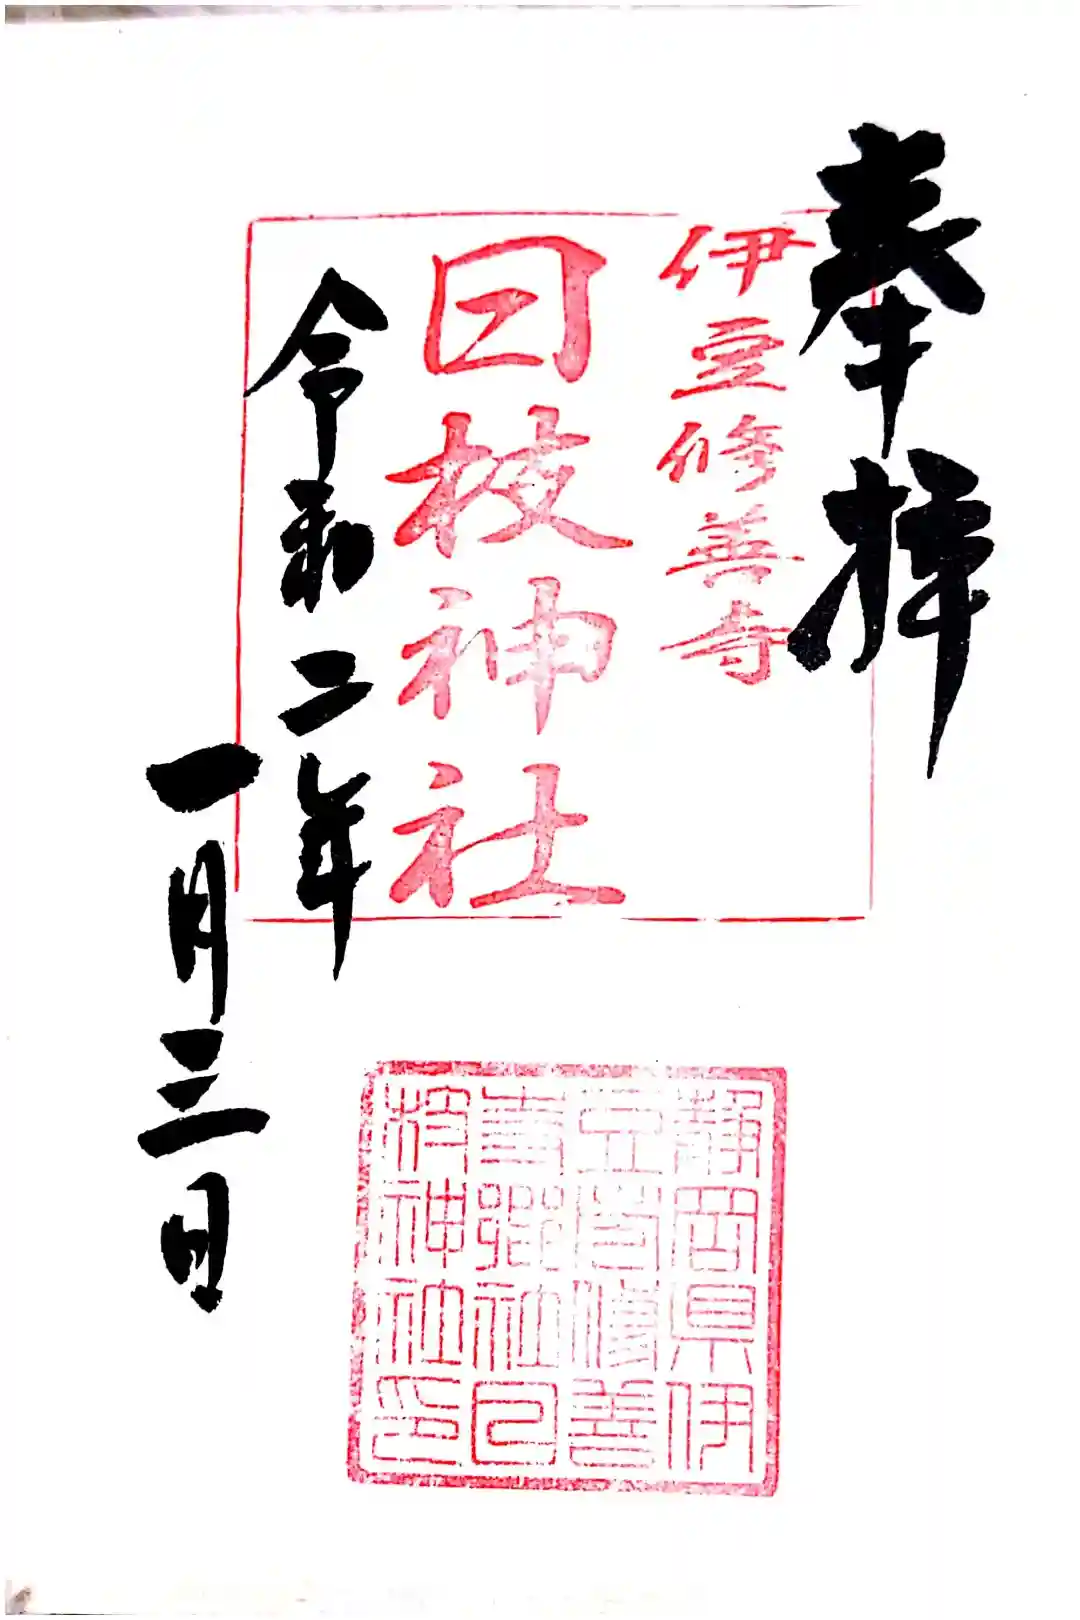 奉拝
伊豆修善寺
日枝神社
令和二年
一月三日
静岡県伊
豆 修善
社日
枝神社印